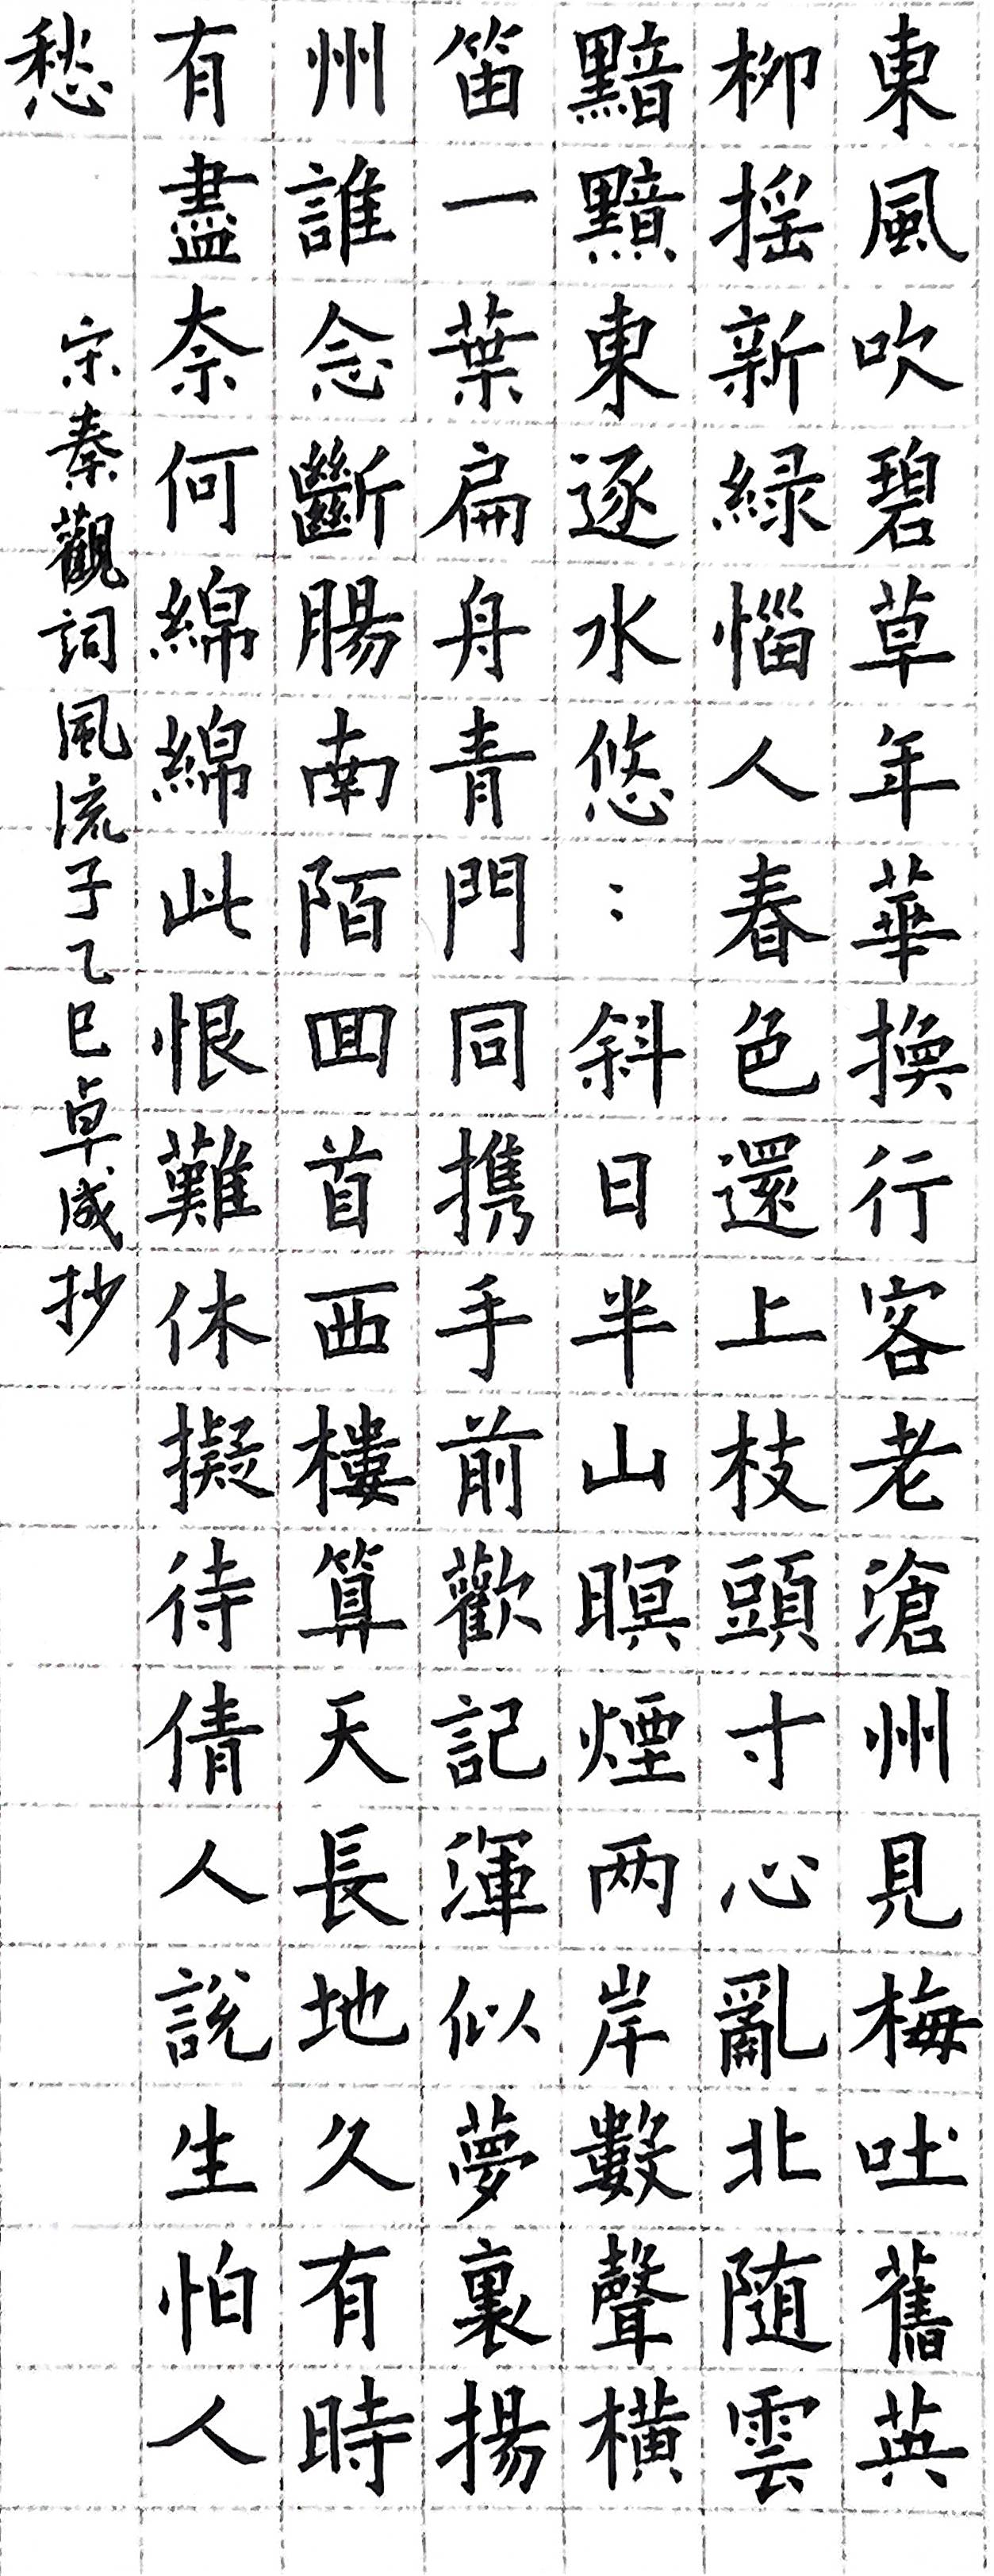 東風吹碧草年華換行客老滄州見梅吐舊英
柳摇新緑惱人春色還上枝頭寸心亂北随雲
黯黯東逐水悠：斜日半山暝煙两岸數聲横
笛一葉扁舟青門同携手前歡記渾似夢裏揚
州誰念斷腸南陌回首西樓算天長地久有時
有盡奈何綿綿此恨難休擬待倩人說生怕人
愁
宋秦觀詞風流子乙巳卓抄